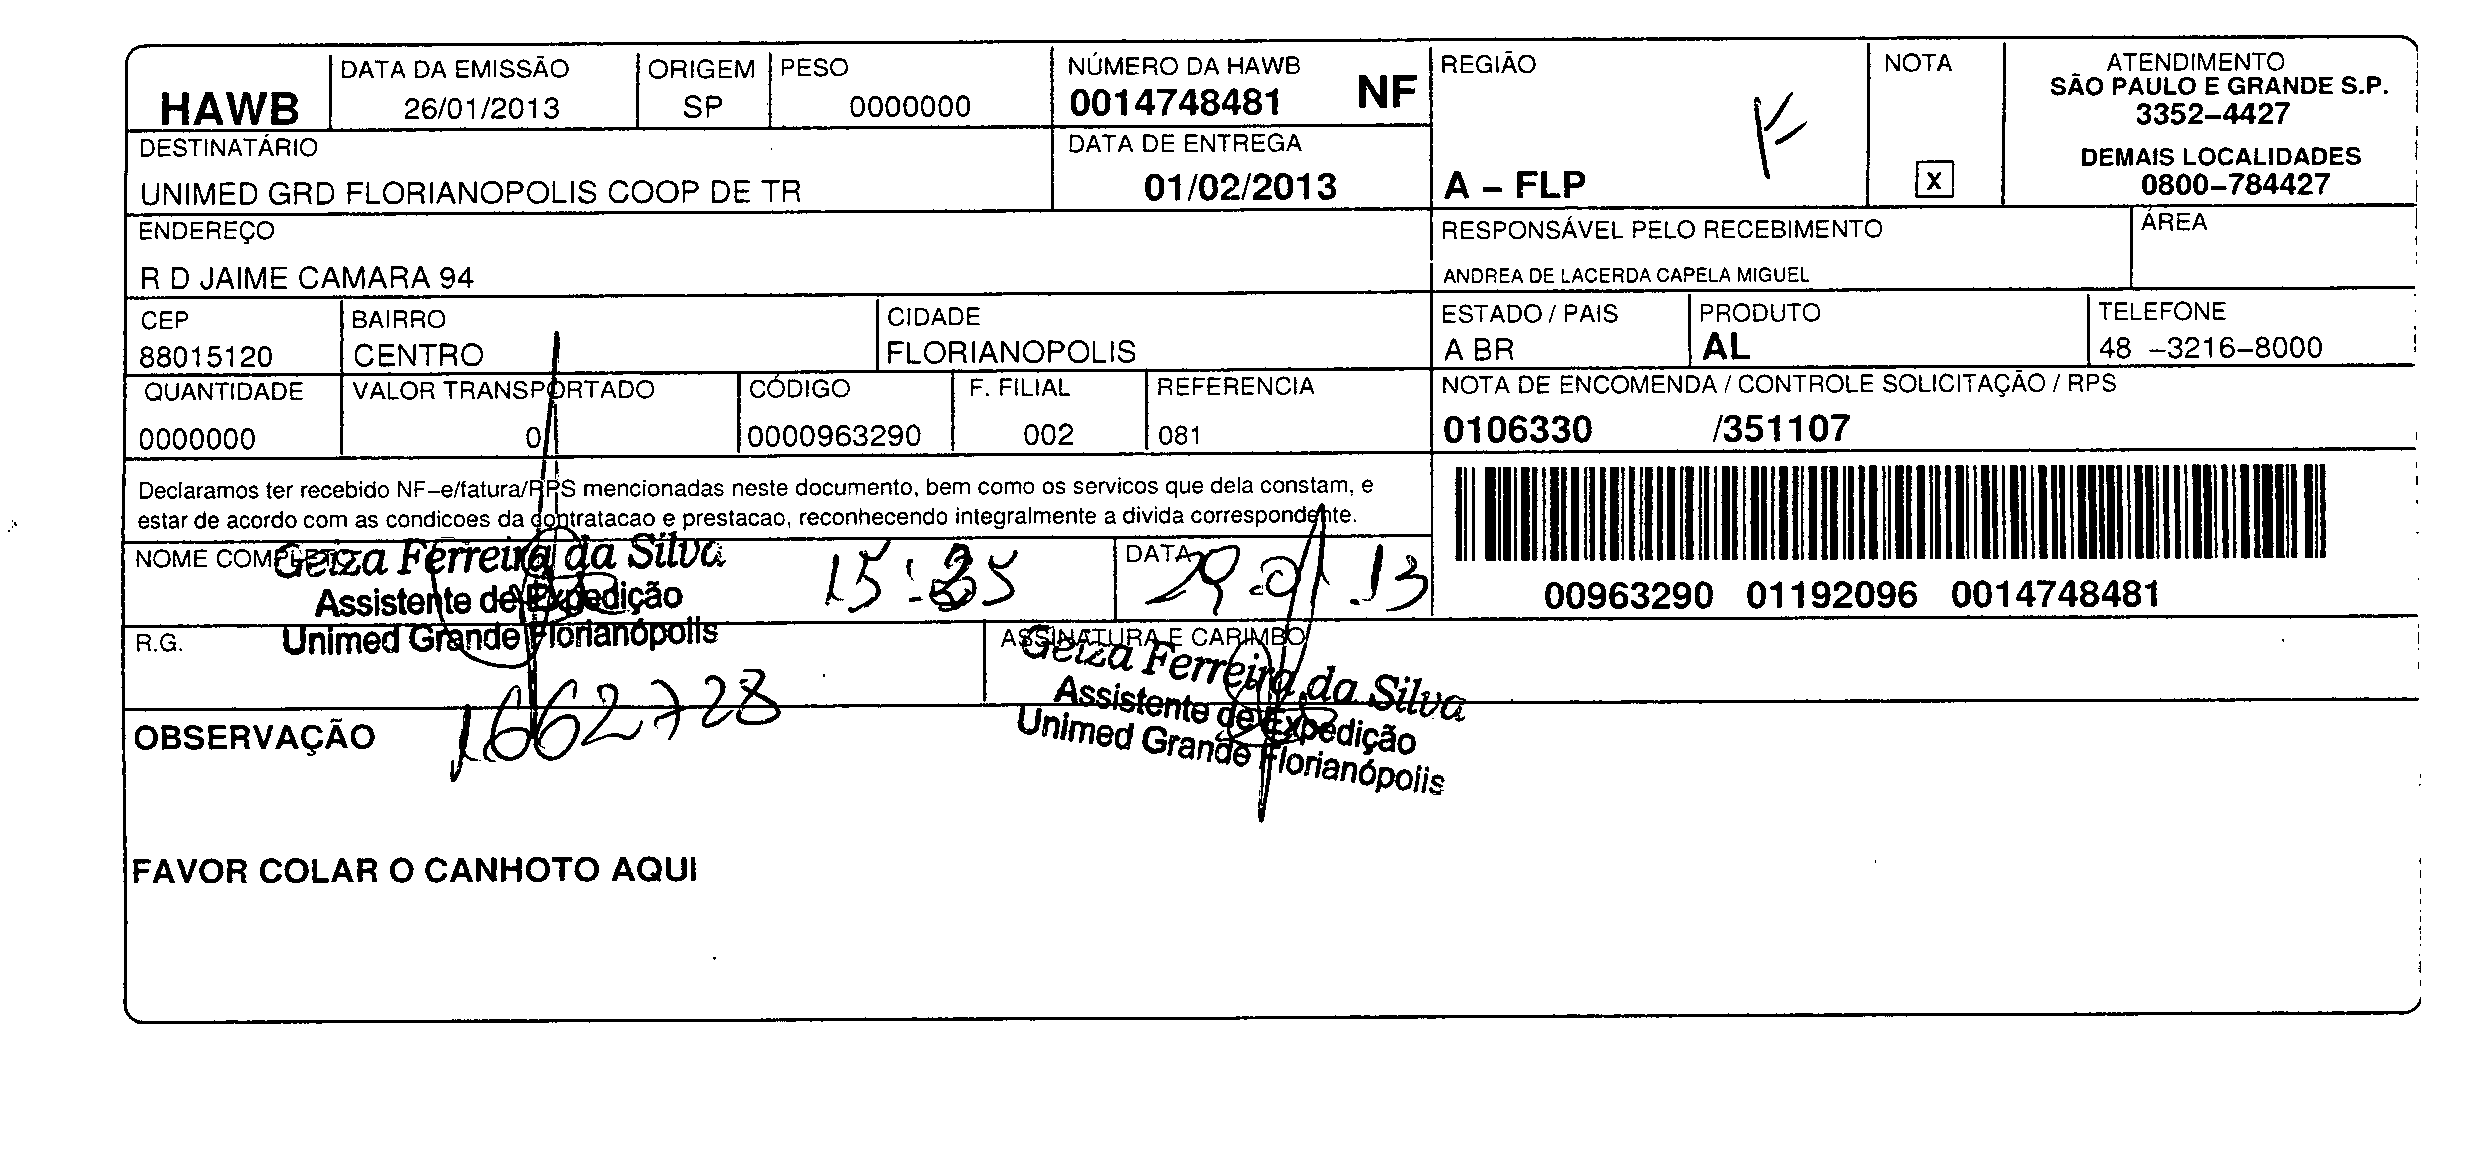 HAWB
DATA DA EMISSÃO
26/01/2013
ORIGEM
SP
PESO
0000000
NÚMERO DA HAWB
0014748481 NF
REGIÃO
A – FLP
NOTA
X
ATENDIMENTO
SÃO PAULO E GRANDE S.P.
3352–4427
DEMAIS LOCALIDADES
0800–784427
DESTINATÁRIO
UNIMED GRD FLORIANOPOLIS COOP DE TR
DATA DE ENTREGA
01/02/2013
ENDEREÇO
R D JAIME CAMARA 94
RESPONSÁVEL PELO RECEBIMENTO
ANDREA DE LACERDA CAPELA MIGUEL
ÁREA
CEP
88015120
BAIRRO
CENTRO
CIDADE
FLORIANOPOLIS
ESTADO / PAIS
A BR
PRODUTO
AL
TELEFONE
48 –3216–8000
QUANTIDADE
0000000
VALOR TRANSPORTADO
0
CÓDIGO
0000963290
F. FILIAL
002
REFERENCIA
081
NOTA DE ENCOMENDA / CONTROLE SOLICITAÇÃO / RPS
0106330 /351107
Declaramos ter recebido NF–e/fatura/RPS mencionadas neste documento, bem como os servicos que dela constam, e
estar de acordo com as condicoes da contratacao e prestacao, reconhecendo integralmente a divida correspondente.
00963290 01192096 0014748481
NOME COMPLETO
Geiza Ferreira da Silva
Assistente de Expedição
Unimed Grande Florianópolis
DATA
29.01.13
R.G.
1662728
ASSINATURA E CARIMBO
Geiza Ferreira da Silva
Assistente de Expedição
Unimed Grande Florianópolis
OBSERVAÇÃO
FAVOR COLAR O CANHOTO AQUI